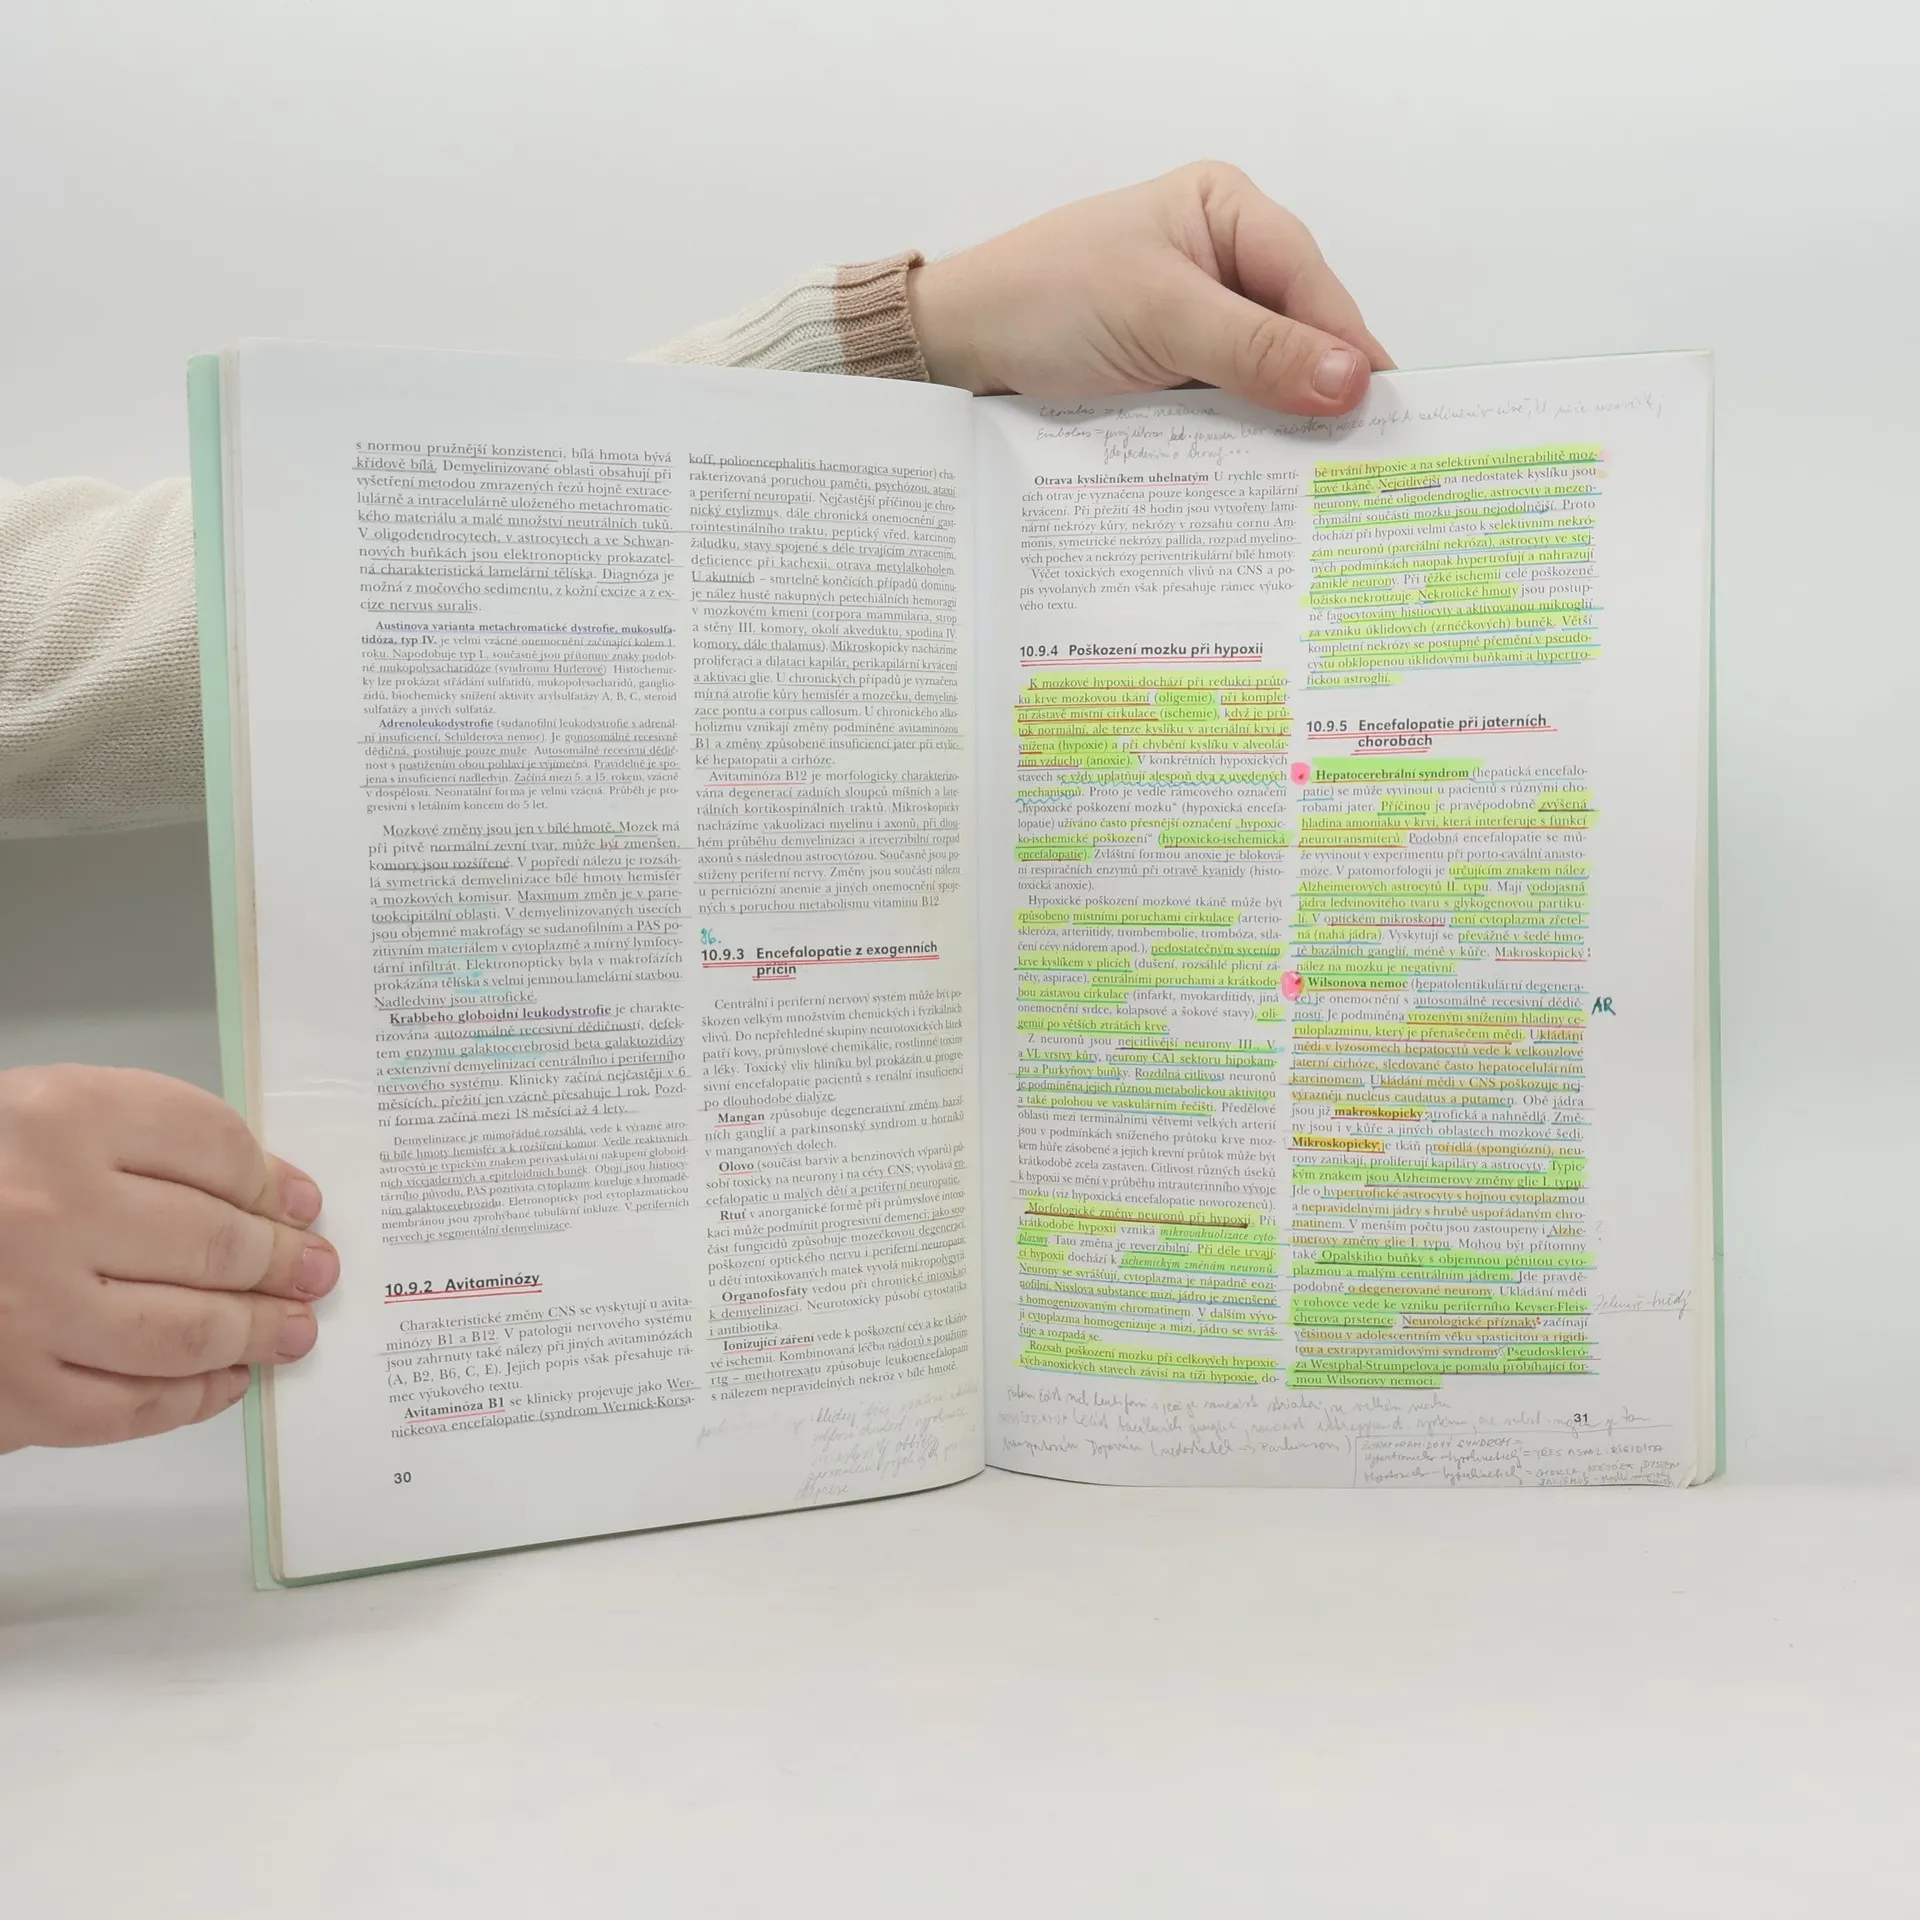 s normou pružnější konzistenci, bílá hmota bývá
křídově bílá. Demyelinizované oblasti obsahují při
vyšetření metodou zmrazených řezů hojně extrace-
lulárně a intracelulárně uloženého metachromatic-
kého materiálu a malé množství neutrálních tuků.
V oligodendrocytech, v astrocytech a ve Schwan-
nových buňkách jsou elektronopticky prokazatel-
ná charakteristická lamelární tělíska. Diagnóza je
možná z močového sedimentu, z kožní excize a z ex-
cize nervus suralis.
Austinova varianta metachromatické dystrofie, mukosulfa-
tidóza, typ IV. je velmi vzácné onemocnění začínající kolem 1.
roku. Napodobuje typ I., současně jsou přítomny znaky podob-
né mukopolysacharidóze (syndromu Hurlerové). Histochemic-
ky lze prokázat střádání sulfatidů, mukopolysacharidů, ganglio-
zidů, biochemicky snížení aktivity arylsulfatázy A, B, C, steroid
sulfatázy a jiných sulfatáz.
Adrenoleukodystrofie (sudanofilní leukodystrofie s adrenál-
ní insuficiencí, Schilderova nemoc). Je gonosomálně recesivně
dědičná, postihuje pouze muže. Autosomálně recesivní dědič-
nost s postižením obou pohlaví je výjimečná. Pravidelně je spo-
jena s insuficiencí nadledvin. Začíná mezi 5. a 15. rokem, vzácně
v dospělosti. Neonatální forma je velmi vzácná. Průběh je pro-
gresivní s letálním koncem do 5 let.
Mozkové změny jsou jen v bílé hmotě. Mozek má
při pitvě normální zevní tvar, může být zmenšen,
komory jsou rozšířené. V popředí nálezu je rozsáh-
lá symetrická demyelinizace bílé hmoty hemisfér
a mozkových komisur. Maximum změn je v parie-
tookcipitální oblasti. V demyelinizovaných úsecích
jsou objemné makrofágy se sudanofilním a PAS po-
zitivním materiálem v cytoplazmě a mírný lymfocy-
tární infiltrát. Elektronopticky byla v makrofázích
prokázána tělíska s velmi jemnou lamelární stavbou.
Nadledviny jsou atrofické.
Krabbeho globoidní leukodystrofie je charakte-
rizována autozomálně recesivní dědičností, defek-
tem enzymu galaktocerebrosid beta galaktozidázy
a extenzivní demyelinizací centrálního i periferního
nervového systému. Klinicky začíná nejčastěji v 6
měsících, přežití jen vzácně přesahuje 1 rok. Pozd-
ní forma začíná mezi 18 měsíci až 4 lety.
Demyelinizace je mimořádně rozsáhlá, vede k výrazné atro-
fii bílé hmoty hemisfér a k rozšíření komor. Vedle reaktivních
astrocytů je typickým znakem perivaskulární nakupení globoid-
ních vícejaderných a epiteloidních buněk. Obojí jsou histiocy-
tárního původu, PAS pozitivita cytoplazmy koreluje s hromadě-
ním galaktocerebrozidu. Eletronopticky pod cytoplazmatickou
membránou jsou zprohýbané tubulární inkluze. V periferních
nervech je segmentální demyelinizace.
10.9.2 Avitaminózy
Charakteristické změny CNS se vyskytují u avita-
minózy B1 a B12. V patologii nervového systému
jsou zahrnuty také nálezy při jiných avitaminózách
(A, B2, B6, C, E). Jejich popis však přesahuje rá-
mec výukového textu.
Avitaminóza B1 se klinicky projevuje jako Wer-
nickeova encefalopatie (syndrom Wernick-Korsa-
30
koff, polioencephalitis haemoragica superior) cha-
rakterizovaná poruchou paměti, psychózou, ataxií
a periferní neuropatií. Nejčastější příčinou je chro-
nický etylizmus, dále chronická onemocnění gast-
rointestinálního traktu, peptický vřed, karcinom
žaludku, stavy spojené s déle trvajícím zvracením,
deficience při kachexii, otrava metylalkoholem.
U akutních – smrtelně končících případů dominu-
je nález hustě nakupných petechiálních hemoragií
v mozkovém kmeni (corpora mammilaria, strop
a stěny III. komory, okolí akveduktu, spodina IV.
komory, dále thalamus). Mikroskopicky nacházíme
proliferaci a dilataci kapilár, perikapilární krvácení
a aktivaci glie. U chronických případů je vyznačena
mírná atrofie kůry hemisfér a mozečku, demyelini-
zace pontu a corpus callosum. U chronického alko-
holizmu vznikají změny podmíněné avitaminózou
B1 a změny způsobené insuficiencí jater při etylic-
ké hepatopatii a cirhóze.
Avitaminóza B12 je morfologicky charakterizo-
vána degenerací zadních sloupců míšních a late-
rálních kortikospinálních traktů. Mikroskopicky
nacházíme vakuolizaci myelinu i axonů, při dlou-
hém průběhu demyelinizaci a ireverzibilní rozpad
axonů s následnou astrocytózou. Současně jsou po-
stiženy periferní nervy. Změny jsou součástí nálezu
u perniciózní anemie a jiných onemocnění spoje-
ných s poruchou metabolismu vitaminu B12
36.
10.9.3 Encefalopatie z exogenních
příčin
Centrální i periferní nervový systém může být po-
škozen velkým množstvím chemických i fyzikálních
vlivů. Do nepřehledné skupiny neurotoxických látek
patří kovy, průmyslové chemikálie, rostlinné toxiny
a léky. Toxický vliv hliníku byl prokázán u progre-
sivní encefalopatie pacientů s renální insuficiencí
po dlouhodobé dialýze.
Mangan způsobuje degenerativní změny bazál-
ních ganglií a parkinsonský syndrom u horníků
v manganových dolech.
Olovo (součást barviv a benzinových výparů) pů-
sobí toxicky na neurony i na cévy CNS; vyvolává en-
cefalopatie u malých dětí a periferní neuropatie.
Rtuť v anorganické formě při průmyslové intoxi-
kaci může podmínit progresivní demenci; jako sou-
část fungicidů způsobuje mozečkovou degeneraci,
poškození optického nervu i periferní neuropatie,
u dětí intoxikovaných matek vyvolá mikropolygyrii
Organofosfáty vedou při chronické intoxikaci
k demyelinizaci. Neurotoxicky působí cytostatika
i antibiotika.
Ionizující záření vede k poškození cév a ke tkáňo-
vé ischemii. Kombinovaná léčba nádorů s použitím
rtg – methotrexatu způsobuje leukoencefalopatii
s nálezem nepravidelných nekróz v bílé hmotě.
Embolus =
Otrava kysličníkem uhelnatým U rychle smrtí-
cích otrav je vyznačena pouze kongesce a kapilární
krvácení. Při přežití 48 hodin jsou vytvořeny lami-
nární nekrózy kůry, nekrózy v rozsahu cornu Am-
monis, symetrické nekrózy pallida, rozpad myelino-
vých pochev a nekrózy periventrikulární bílé hmoty.
Výčet toxických exogenních vlivů na CNS a po-
pis vyvolaných změn však přesahuje rámec výuko-
vého textu.
10.9.4 Poškození mozku při hypoxii
K mozkové hypoxii dochází při redukci průto-
ku krve mozkovou tkání (oligemie), při komplet-
ní zástavě místní cirkulace (ischemie), když je prů-
tok normální, ale tenze kyslíku v arteriální krvi je
snížena (hypoxie) a při chybění kyslíku v alveolár-
ním vzduchu (anoxie). V konkrétních hypoxických
stavech se vždy uplatňují alespoň dva z uvedených
mechanismů. Proto je vedle rámcového označení
„hypoxické poškození mozku“ (hypoxická encefa-
lopatie) užíváno často přesnější označení „hypoxic-
ko-ischemické poškození“ (hypoxicko-ischemická
encefalopatie). Zvláštní formou anoxie je bloková-
ní respiračních enzymů při otravě kyanidy (histo-
toxická anoxie).
Hypoxické poškození mozkové tkáně může být
způsobeno místními poruchami cirkulace (arterio-
skleróza, arteriitidy, trombembolie, trombóza, stla-
čení cévy nádorem apod.), nedostatečným sycením
krve kyslíkem v plicích (dušení, rozsáhlé plicní zá-
něty, aspirace), centrálními poruchami a krátkodo-
bou zástavou cirkulace (infarkt, myokarditidy, jiná
onemocnění srdce, kolapsové a šokové stavy), oli-
gemií po větších ztrátách krve.
Z neuronů jsou nejcitlivější neurony III., V.
a VI. vrstvy kůry, neurony CA1 sektoru hipokam-
pu a Purkyňovy buňky. Rozdílná citlivost neuronů
je podmíněna jejich různou metabolickou aktivitou
a také polohou ve vaskulárním řečišti. Předělové
oblasti mezi terminálními větvemi velkých arterií
jsou v podmínkách sníženého průtoku krve moz-
kem hůře zásobené a jejich krevní průtok může být
krátkodobě zcela zastaven. Citlivost různých úseků
k hypoxii se mění v průběhu intrauterinního vývoje
mozku (viz hypoxická encefalopatie novorozenců).
Morfologické změny neuronů při hypoxii. Při
krátkodobé hypoxii vzniká mikrovakuolizace cyto-
plazmy. Tato změna je reverzibilní. Při déle trvají-
cí hypoxii dochází k ischemickým změnám neuronů.
Neurony se svrašťují, cytoplazma je nápadně eozi-
nofilní, Nisslova substance mizí, jádro je zmenšené
s homogenizovaným chromatinem. V dalším vývo-
ji cytoplazma homogenizuje a mizí, jádro se svráš-
ťuje a rozpadá se.
Rozsah poškození mozku při celkových hypoxic-
kých-anoxických stavech závisí na tíži hypoxie, do-
bě trvání hypoxie a na selektivní vulnerabilitě moz-
kové tkáně. Nejcitlivější na nedostatek kyslíku jsou
neurony, méně oligodendroglie, astrocyty a mezen-
chymální součásti mozku jsou nejodolnější. Proto
dochází při hypoxii velmi často k selektivním nekró-
zám neuronů (parciální nekróza), astrocyty ve stej-
ných podmínkách naopak hypertrofují a nahrazují
zaniklé neurony. Při těžké ischemii celé poškozené
ložisko nekrotizuje. Nekrotické hmoty jsou postup-
ně fagocytovány histiocyty a aktivovanou mikroglií
za vzniku úklidových (zrnéčkových) buněk. Větší
kompletní nekrózy se postupně přemění v pseudo-
cystu obklopenou úklidovými buňkami a hypertro-
fickou astroglií.
10.9.5 Encefalopatie při jaterních
chorobách
Hepatocerebrální syndrom (hepatická encefalo-
patie) se může vyvinout u pacientů s různými cho-
robami jater. Příčinou je pravěpodobně zvýšená
hladina amoniaku v krvi, která interferuje s funkcí
neurotransmiterů. Podobná encefalopatie se mů-
že vyvinout v experimentu při porto-cavální anasto-
móze. V patomorfologii je určujícím znakem nález
Alzheimerových astrocytů II. typu. Mají vodojasná
jádra ledvinovitého tvaru s glykogenovou partiku-
lí. V optickém mikroskopu není cytoplazma zřetel-
ná (nahá jádra). Vyskytují se převážně v šedé hmo-
tě bazálních ganglií, méně v kůře. Makroskopický
nález na mozku je negativní.
Wilsonova nemoc (hepatolentikulární degenera-
ce) je onemocnění s autosomálně recesivní dědič-
AR
ností. Je podmíněna vrozeným snížením hladiny ce-
ruloplazminu, který je přenašečem mědi. Ukládání
mědi v lyzosomech hepatocytů vede k velkouzlové
jaterní cirhóze, sledované často hepatocelulárním
karcinomem. Ukládání mědi v CNS poškozuje nej-
výrazněji nucleus caudatus a putamen. Obě jádra
jsou již makroskopicky atrofická a nahnědlá. Změ-
ny jsou i v kůře a jiných oblastech mozkové šedi.
Mikroskopicky je tkáň prořídlá (spongiózní), neu-
rony zanikají, proliferují kapiláry a astrocyty. Typic-
kým znakem jsou Alzheimerovy změny glie I. typu.
Jde o hypertrofické astrocyty s hojnou cytoplazmou
a nepravidelnými jádry s hrubě uspořádaným chro-
matinem. V menším počtu jsou zastoupeny i Alzhe-
imerovy změny glie I. typu. Mohou být přítomny
také Opalskiho buňky s objemnou pěnitou cyto-
plazmou a malým centrálním jádrem. Jde pravdě-
podobně o degenerované neurony. Ukládání mědi
v rohovce vede ke vzniku periferního Keyser-Fleis-
cherova prstence. Neurologické příznaky začínají
většinou v adolescentním věku spasticitou a rigidi-
tou a extrapyramidovými syndromy. Pseudoskleró-
za Westphal-Strumpelova je pomalu probíhající for-
mou Wilsonovy nemoci.
31